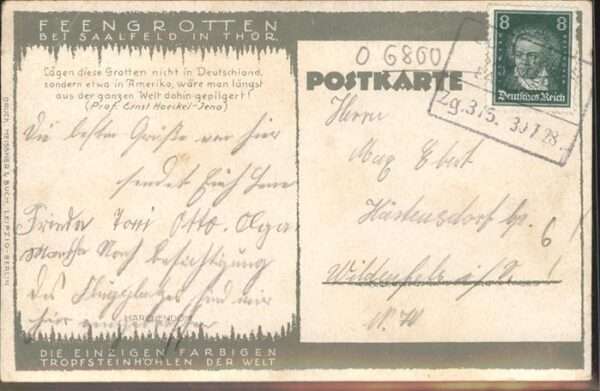 FEENGROTTEN
BEI SAALFELD IN THÜR.
Lägen diese Grotten nicht in Deutschland,
sondern etwa in Amerika, wäre man längst
aus der ganzen Welt dahin gepilgert!
(Prof. Ernst Haeckel-Jena)
Die besten Grüße von hier
sendet Euch
Frieda Toni Otto. Olga
Martha Nach Besichtigung
des Flugplatzes sind wir
hier
MÄRCHENDOM
DIE EINZIGEN FARBIGEN
TROPFSTEINHÖHLEN DER WELT
DRUCK MEISSNER & BUCH, LEIPZIG-BERLIN
0 6860
POSTKARTE
8 8
Deutsches Reich
Zg. 315. 30 7 28
Herrn
Max Ebert
Härtensdorf
6
Wildenfels i/S. !